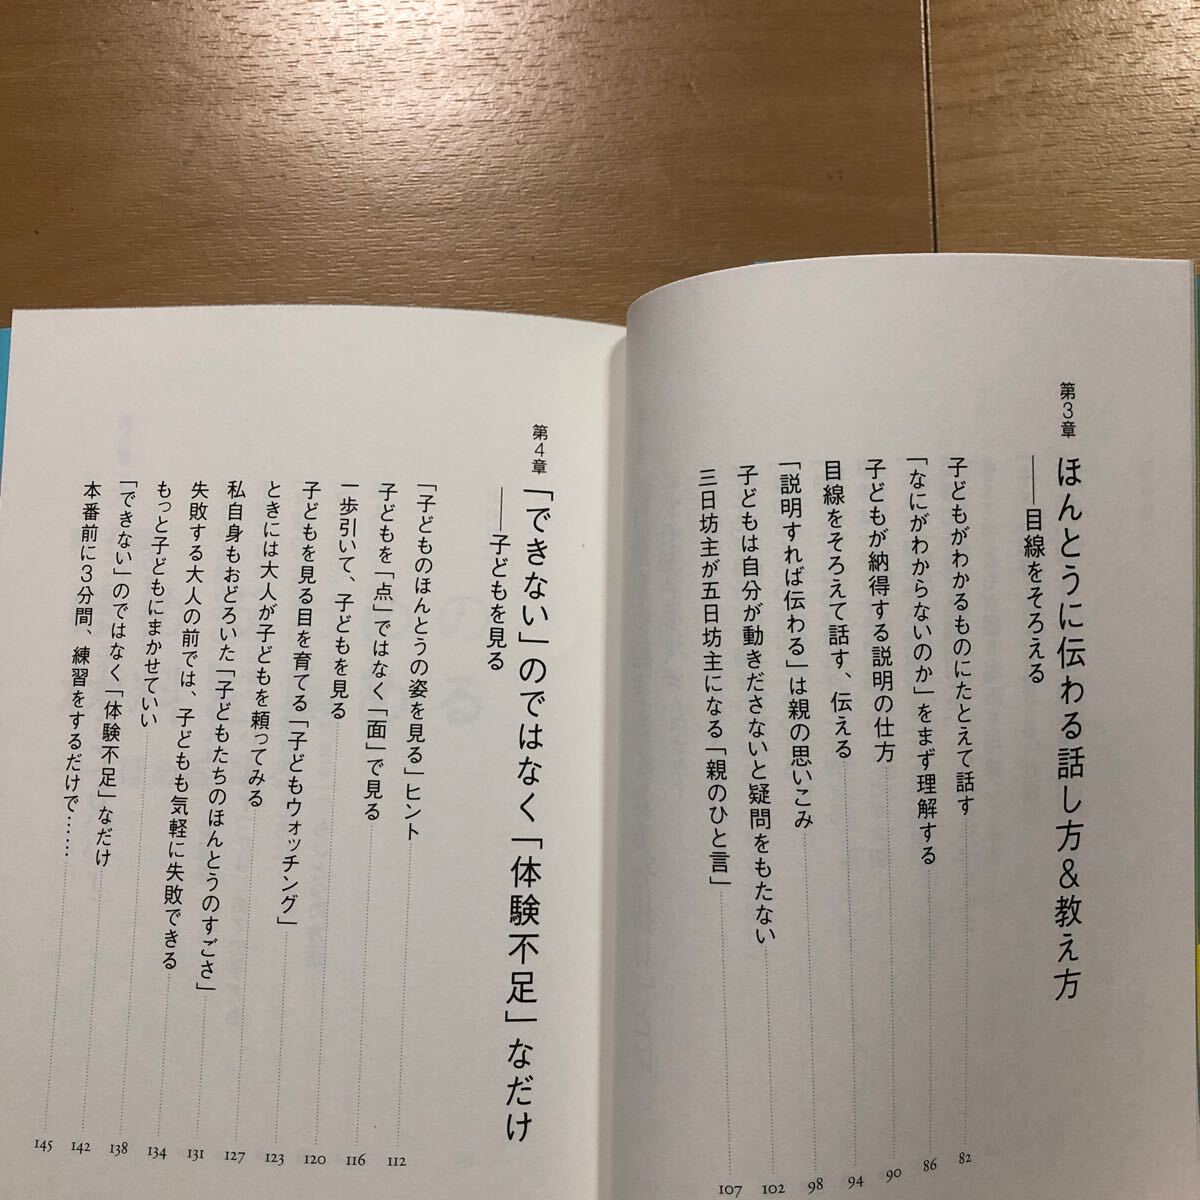 第3章 ほんとうに伝わる話し方&教え方
——目線をそろえる
子どもがわかるものにたとえて話す 82
「なにがわからないのか」をまず理解する 86
子どもが納得する説明の仕方 90
目線をそろえて話す、伝える 94
「説明すれば伝わる」は親の思いこみ 98
子どもは自分が動きださないと疑問をもたない 102
三日坊主が五日坊主になる「親のひと言」 107
第4章 「できない」のではなく「体験不足」なだけ
——子どもを見る
「子どものほんとうの姿を見る」ヒント 112
子どもを「点」ではなく「面」で見る 116
一歩引いて、子どもを見る 120
子どもを見る目を育てる「子どもウォッチング」 123
ときには大人が子どもを頼ってみる 127
私自身もおどろいた「子どもたちのほんとうのすごさ」 131
失敗する大人の前では、子どもも気軽に失敗できる 134
もっと子どもにまかせていい 138
「できない」のではなく「体験不足」なだけ 142
本番前に3分間、練習をするだけで…… 145